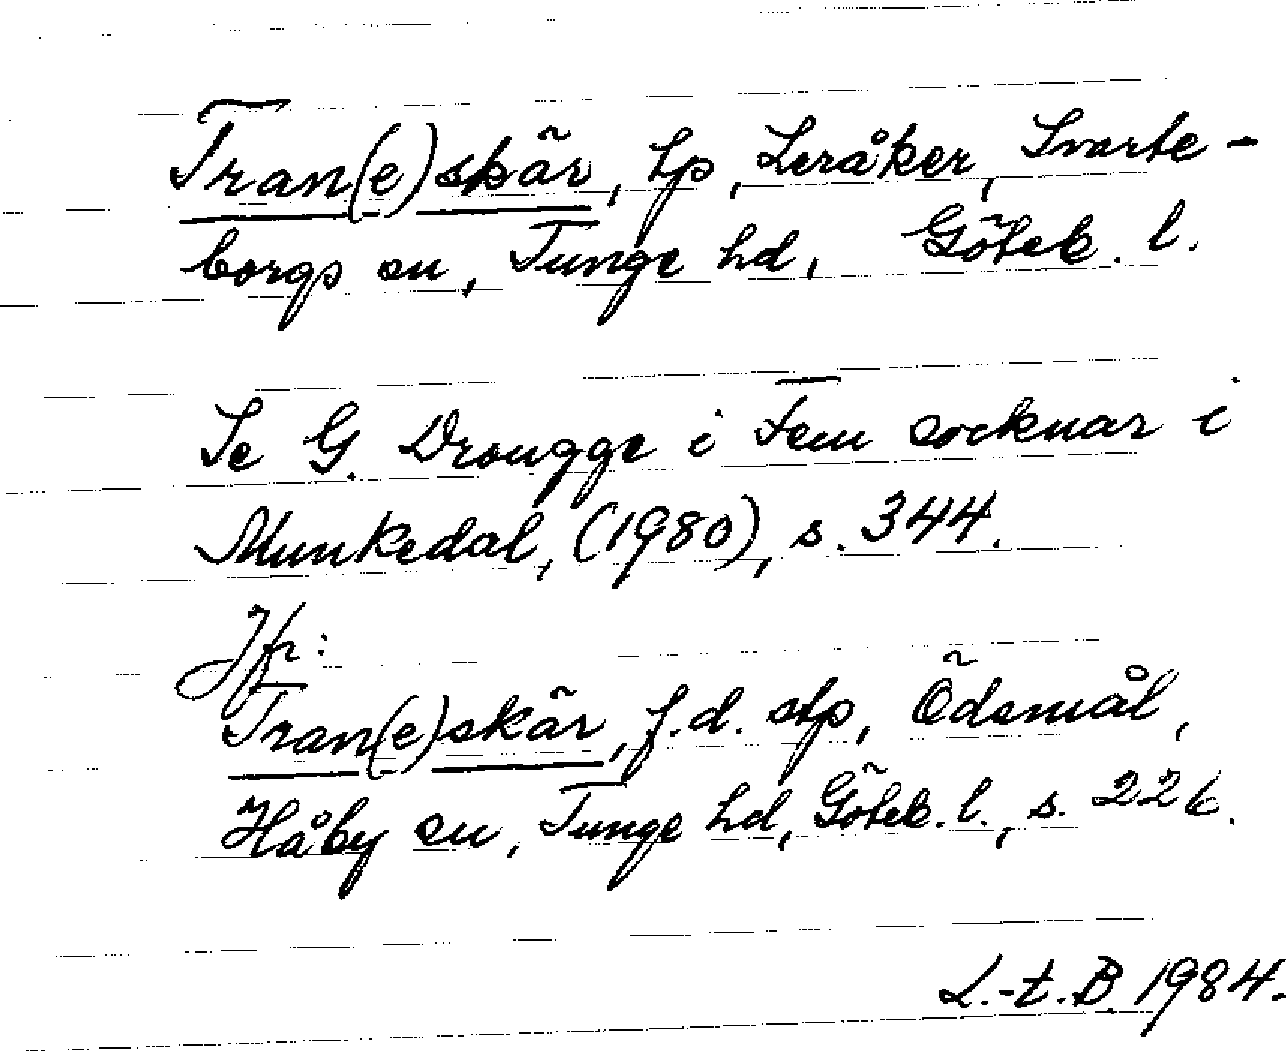 Tran(e)skär, tp, Leråker, Svarte-
borgs sn, Tunge hd, Göteb. l.
Se G. Drougge i Fem socknar i
Munkedal, (1980), s. 344.
Jfr:
Tran(e)skär, f.d. stp, Ödsmål,
Håby sn, Tunge hd, Göteb. l., s. 226.
L.-t. B. 1984.